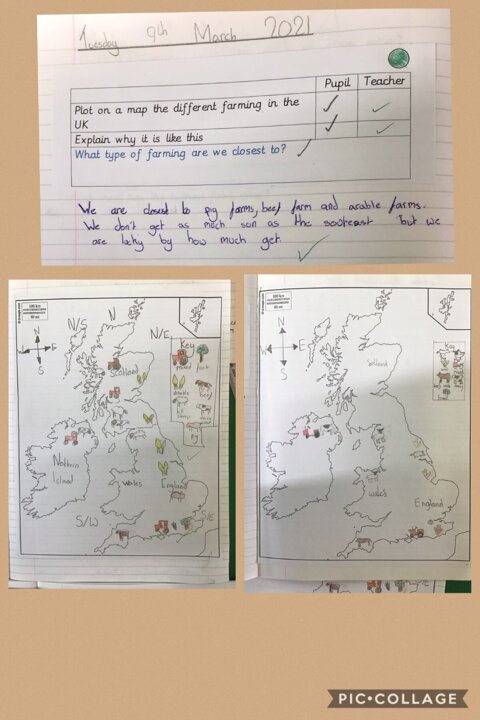 Tuesday 9th March 2021
Pupil Teacher
Plot on a map the different farming in the
UK
Explain why it is like this
What type of farming are we closest to?
We are closest to pig farms, beef farm and arable farms.
We don't get as much sun as the but we
are by how much get
N
N/S N N/E
E
S
Key
Scotland
beef
Nothern
Island
Wales England
S/W S/E
N
W E
S
Key
Scotland
Wales
England
PIC•COLLAGE